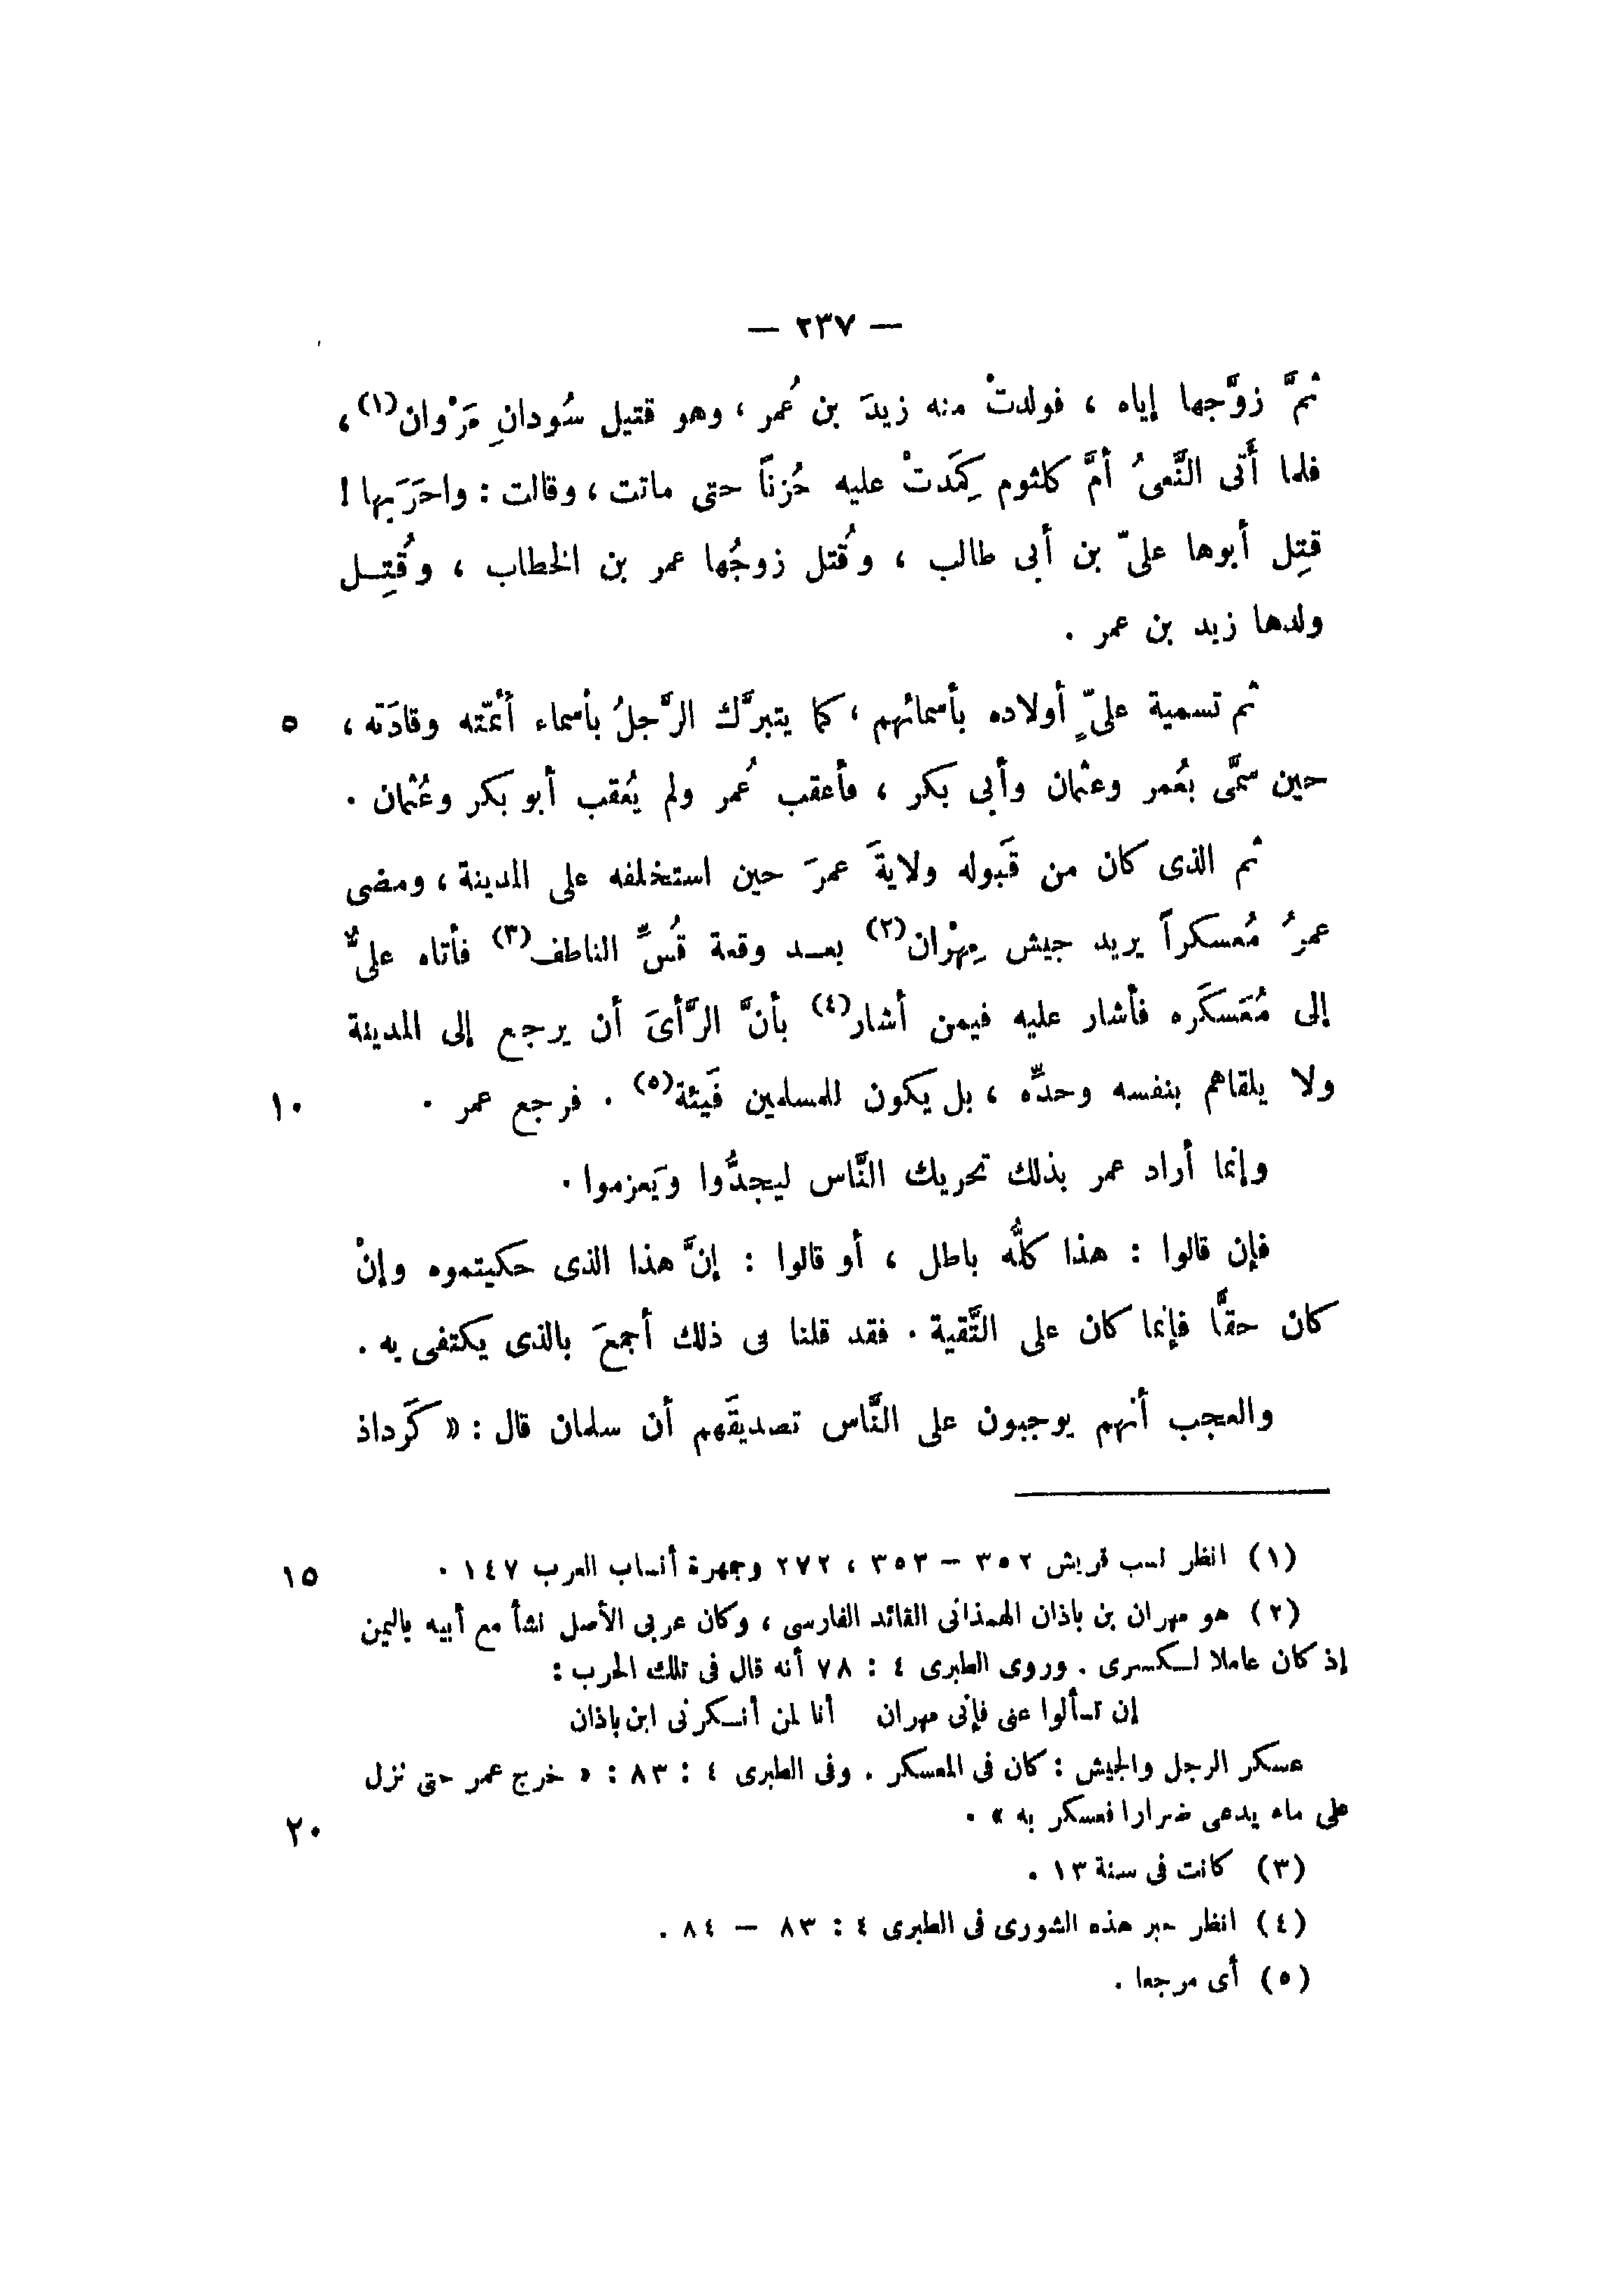 — ٢٣٧ —
ثمَّ زوَّجها إياه ، فولدتْ منه زيدَ بن عُمر ، وهو قتيل سُودانِ مَرْوان(١) ،
فلما أَتى النَّعىُ أمَّ كلثوم كَمِدَتْ عليه حُزناً حتى ماتت ، وقالت : واحَرَبَها !
قتِل أبوها علىّ بن أبى طالب ، وقُتل زوجُها عمر بن الخطاب ، وقُتِـل
ولدها زيد بن عمر .
ثم تسمية علىٍّ أولاده بأسمائهم ، كما يتبرَّك الرَّجلُ بأسماء أئمّته وقادَته ، ٥
حين سمَّى بعُمر وعثمان وأبى بكر ، فأعقب عُمر ولم يُعقب أبو بكر وعُثمان .
ثم الذى كان من قَبوله ولايةَ عمرَ حين استخلفه على المدينة ، ومضى
عمرُ مُعسكراً يريد جيش مِهْران(٢) بعـد وقعة قُسِّ الناطف(٣) فأتاه علىٌّ
إلى مُعَسكَره فأشار عليه فيمن أشار(٤) بأنَّ الرَّأىَ أن يرجع إلى المدينة
ولا يلقاهم بنفسه وحدِّه ، بل يكون للمسلمين فَيئة(٥) . فرجع عمر . ١٠
وإنما أراد عمر بذلك تحريك النَّاس ليجدُّوا ويَعزموا .
فإن قالوا : هذا كلُّه باطل ، أو قالوا : إنَّ هذا الذى حكيتموه وإنْ
كان حقًّا فإنما كان على التَّقية . فقد قلنا فى ذلك أجمعَ بالذى يكتفى به .
والعجب أنهم يوجبون على النَّاس تصديقَهم أن سلمان قال : « كَرداذ
(١) انظر نسب قريش ٣٥٢ – ٣٥٣ ، ٢٧٢ وجمهرة أنساب العرب ١٤٧ . ١٥
(٢) هو مهران بن باذان الهمذانى القائد الفارسى ، وكان عربى الأصل نشأ مع أبيه باليمن
إذ كان عاملا لـكسرى . وروى الطبرى ٤ : ٧٨ أنه قال فى تلك الحرب :
إن تسألوا عنى فإنى مهران أنا لمن أنـكرنى ابن باذان
عسكر الرجل والجيش : كان فى المعسكر . وفى الطبرى ٤ : ٨٣ : « خرج عمر حتى نزل
على ماء يدعى ضرارا فعسكر به » . ٢٠
(٣) كانت فى سنة ١٣ .
(٤) انظر خبر هذه الشورى فى الطبرى ٤ : ٨٣ — ٨٤ .
(٥) أى مرجعا .